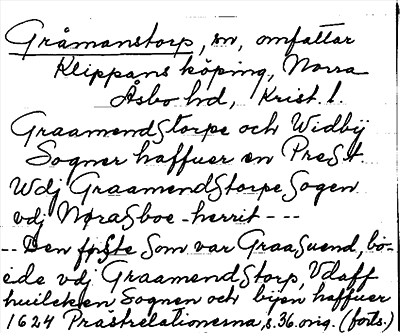 Gråmanstorp, sn, omfattar
Klippans köping, Norra
Åsbo hd, Krist. l.
GraamendStorpe och Widbÿ
Sogner haffuer en PreSt
Wdj GraamendStorpe Sogen
vdj NøraSboe-herrit - - -
-- Den første Som var GraaSuend, bo-
ede vdj GraamendStorp, Vdaff
huilcken Sognen och bÿen haffuer
1624 Prästrelationerna, s. 36. orig. (forts.)